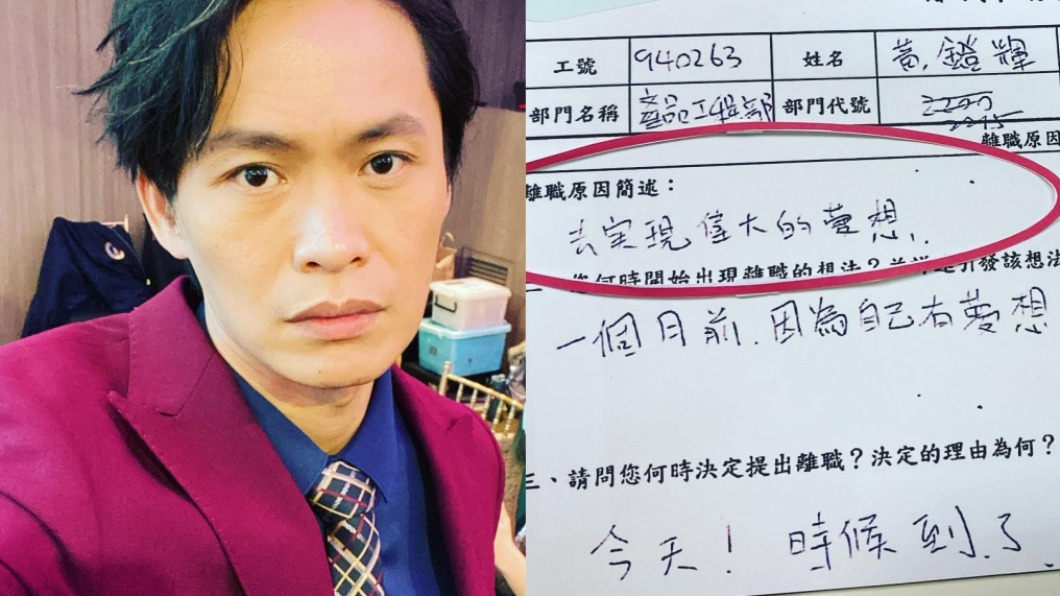 工號 940263 姓名 黃鐙輝
部門名稱 產品工程部 部門代號
離職原因
離職原因簡述：
去實現偉大的夢想..
您何時開始出現離職的想法？
一個月前.因為自己有夢想
三、請問您何時決定提出離職？決定的理由為何？
今天！時候到了